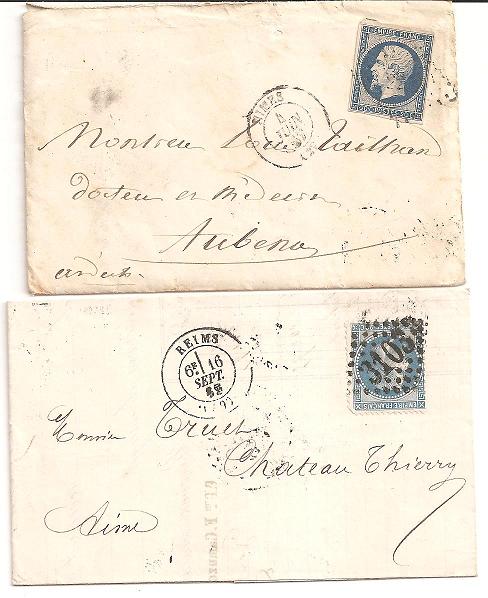 EMPIRE FRANC.
NIMES
4
JUIN
Monsieur Louis Tailhand
docteur en médecine
Aubenas
ardèche
REIMS
6E 16
SEPT.
3103
EMPIRE FRANÇAIS
Monsieur Truet
Chateau Thierry
Aisne